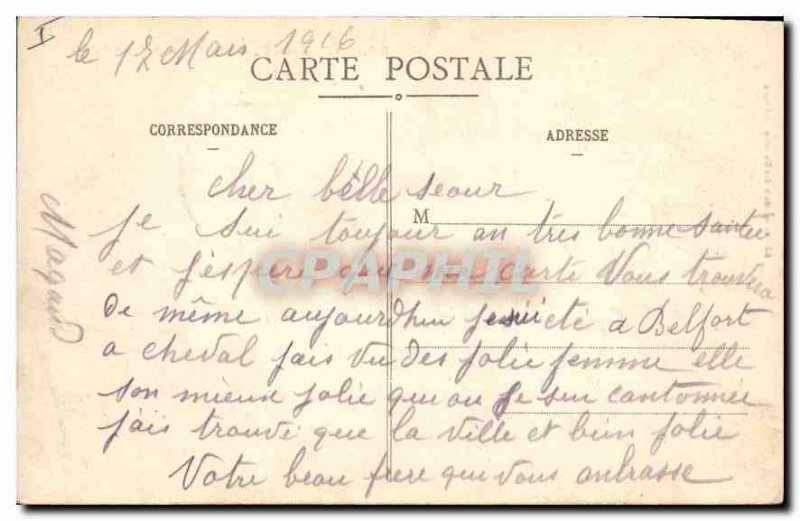 I
le 12 Mars 1916
CARTE POSTALE
CORRESPONDANCE
ADRESSE
cher bélle seour
M
Je sui toujour an très bonne santee
et j'éspere que ma carte Vous trouvera
CPAPHIL
de même aujourdhui je sui eté a Belfort
a cheval jais vu des jolie femme elle
son mieux jolie qu ou je sui cantonnée
jais trouvé que la ville et bien jolie
Votre beau frere qui vous anbrasse
Magaud